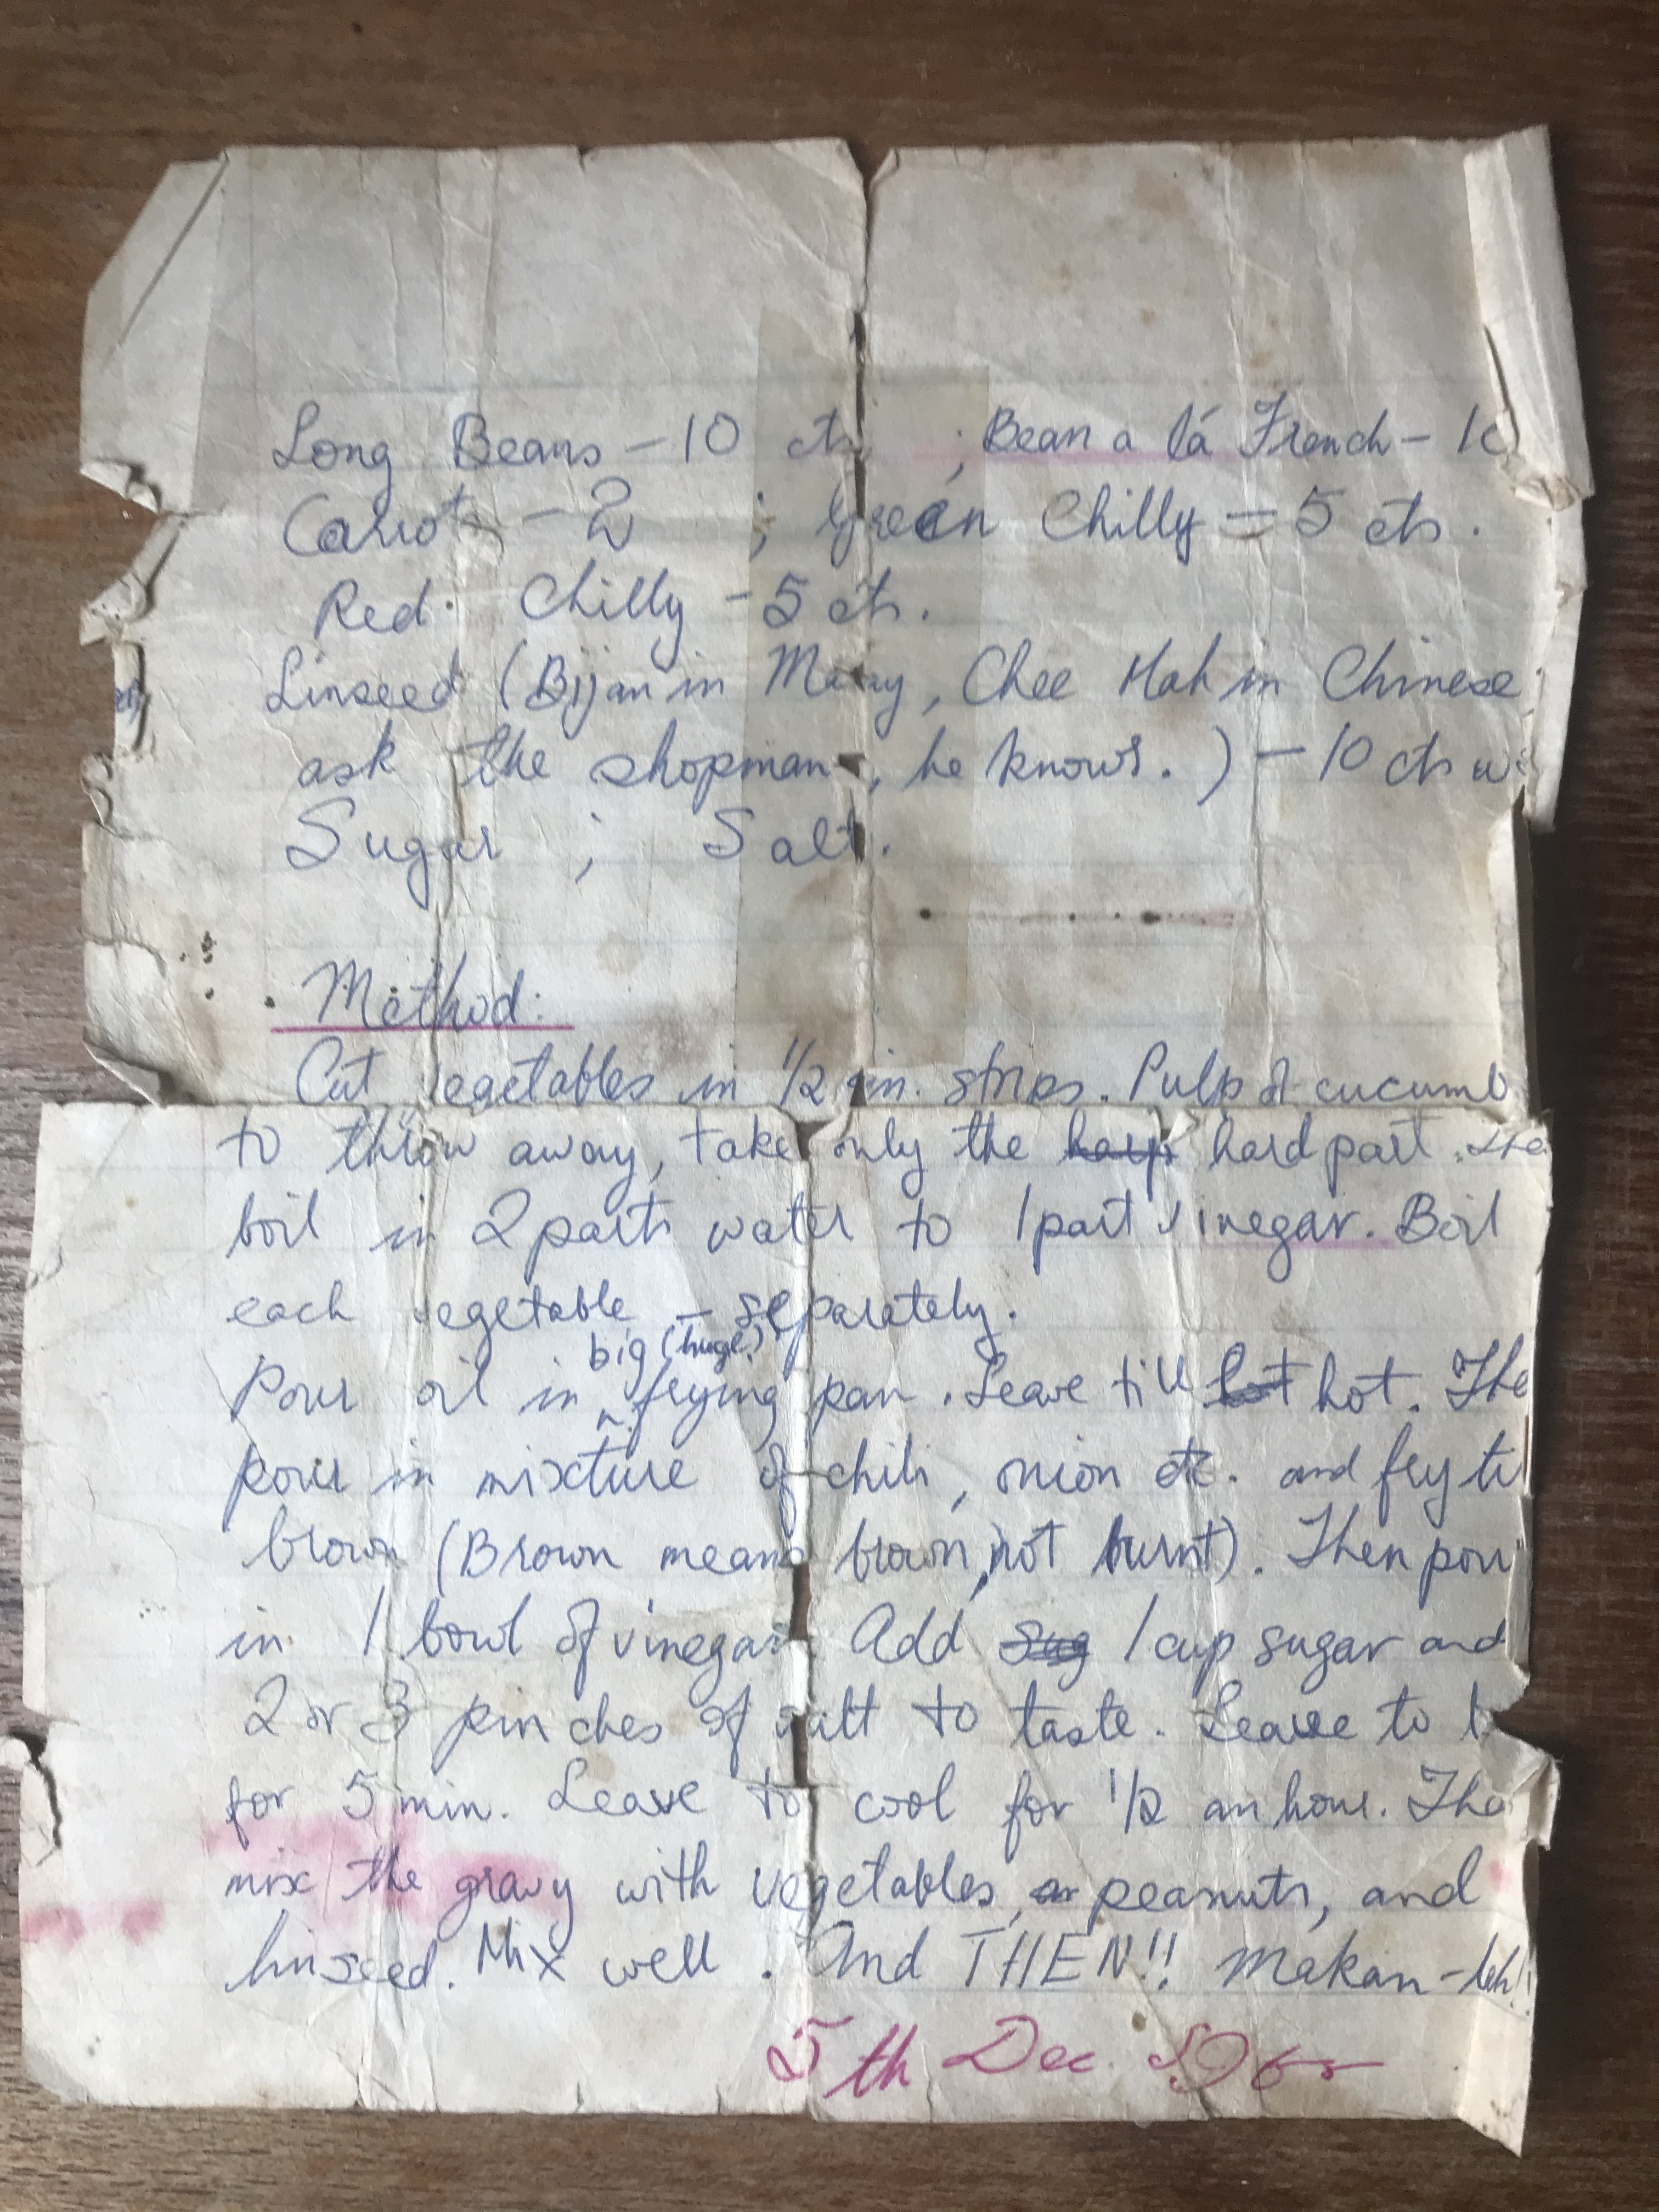 Long Beans – 10 cts ; Bean a lá French – 10
Carrots – 2 ; Green Chilly = 5 cts.
Red Chilly – 5 cts.
Linseed (Bijan in Malay, Chee Mah in Chinese
ask the shopman, he knows.) – 10 cts
Sugar ; Salt.
Method:
Cut vegetables in 1/2 in. strips. Pulp of cucumb
to throw away, take only the hard part. The
boil in 2 parts water to 1 part vinegar. Boil
each vegetable – separately.
big (huge)
Pour oil in ^ frying pan. Leave till hot. The
pour in mixture of chili, onion etc. and fry ti
brown (Brown means brown, not burnt). Then pour
in 1 bowl of vinegar. Add sug 1 cup sugar and
2 or 3 pinches of salt to taste. Leave to b
for 5 min. Leave to cool for 1/2 an hour. The
mix the gravy with vegetables, peanuts, and
linseed. Mix well. And THEN!! Makan-lah!!
5th Dec.